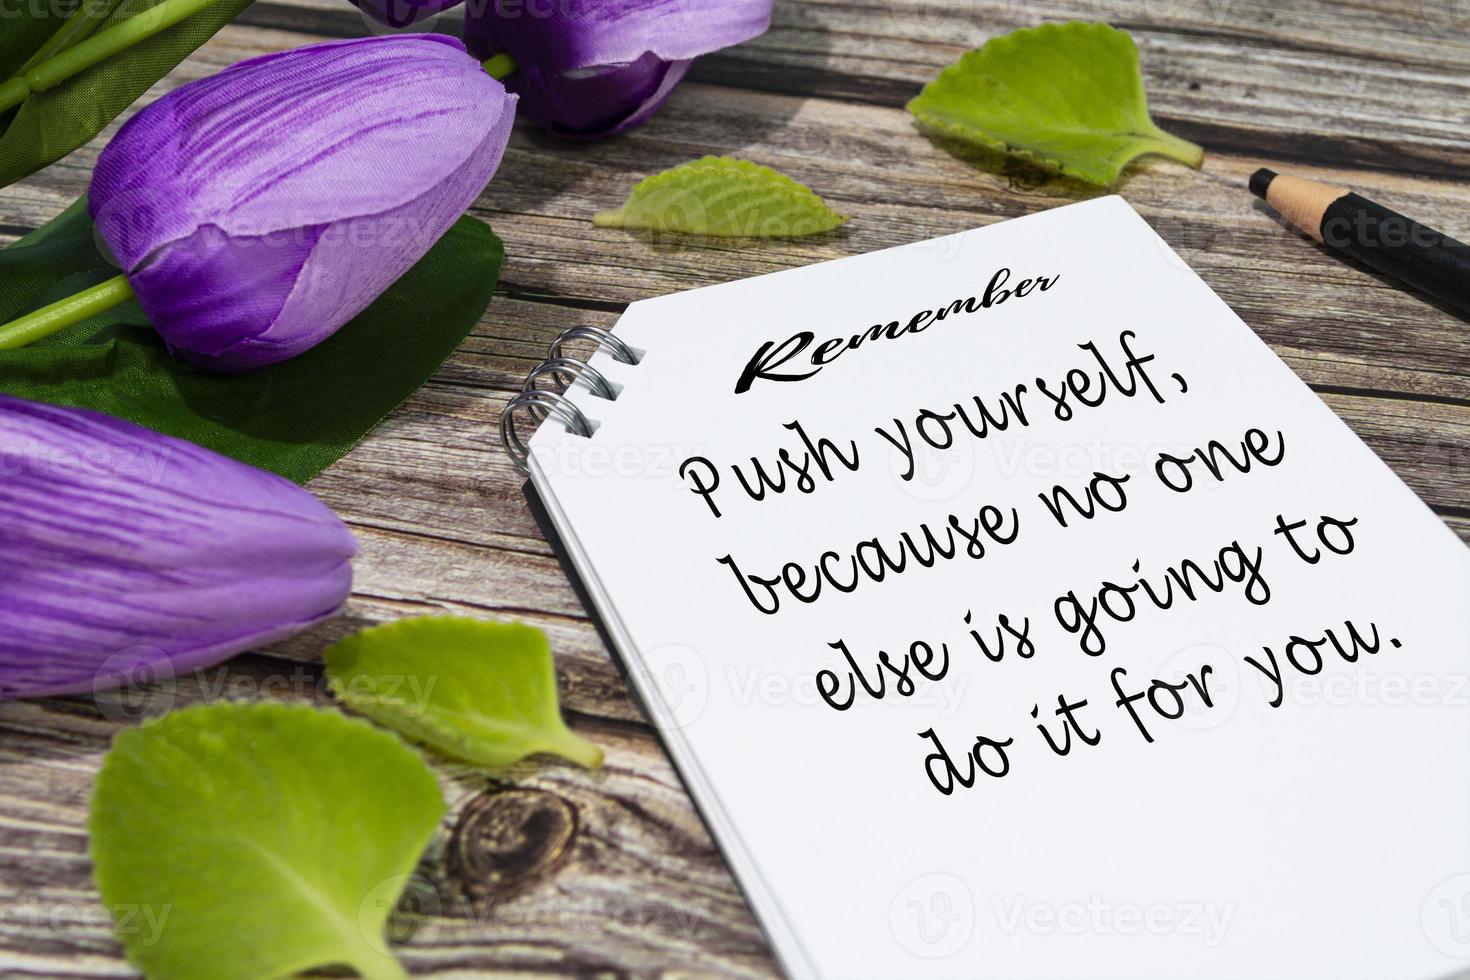 Remember
Push yourself,
because no one
else is going to
do it for you.
Vecteezy